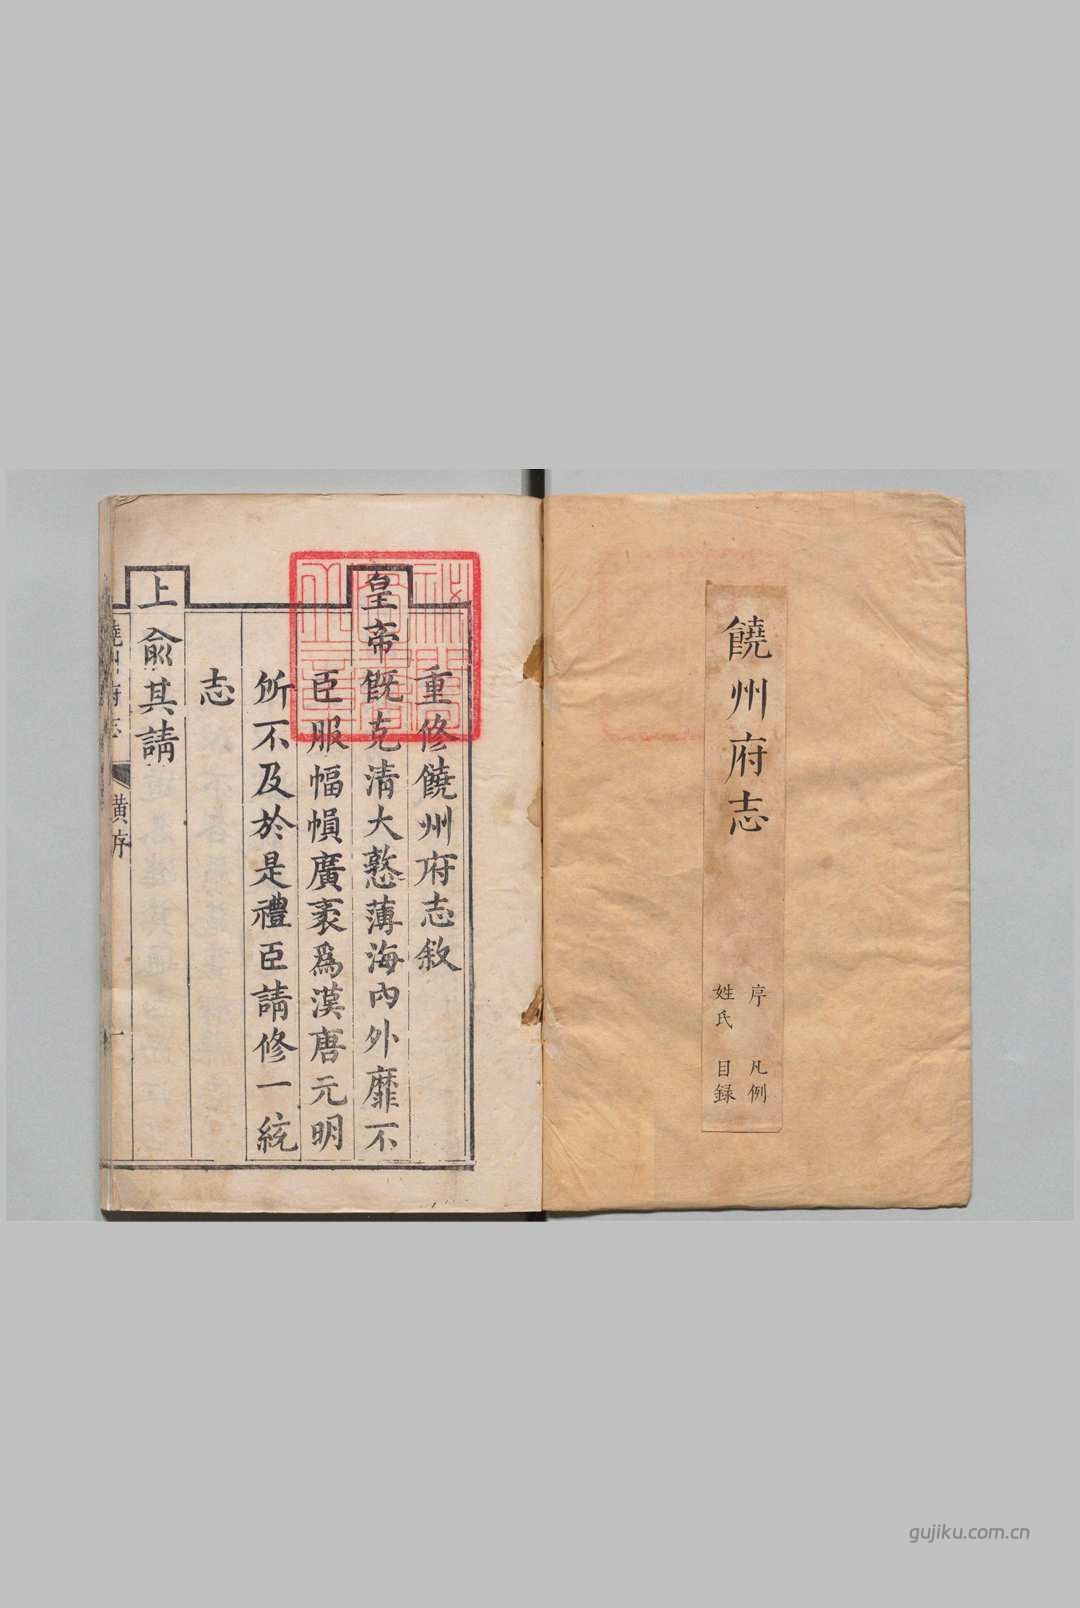 饒州府志
序 凡例
姓氏 目録
重修饒州府志敘
皇帝既克清大憝薄海內外靡不
臣服幅幀廣袤爲漢唐元明
所不及於是禮臣請修一統
志
上俞其請
饒州府志 黄序 一
gujiku.com.cn